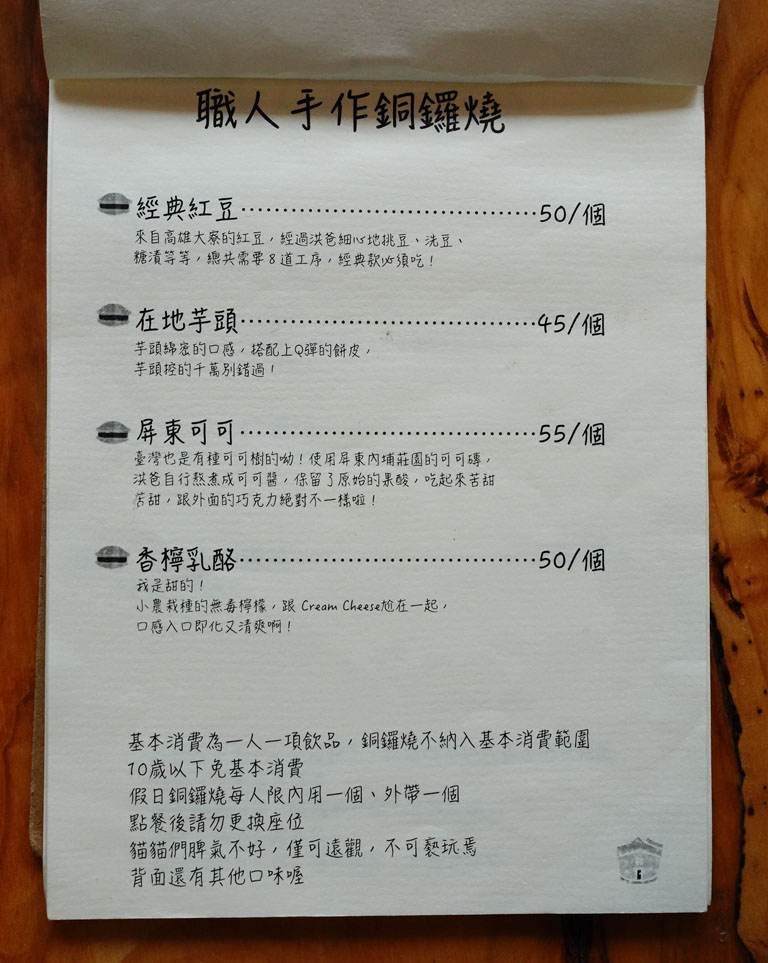 職人手作銅鑼燒
經典紅豆⋯⋯⋯⋯⋯⋯⋯⋯⋯⋯⋯50/個
來自高雄大寮的紅豆，經過洪爸細心地挑豆、洗豆、
糖漬等等，總共需要8道工序，經典款必須吃！
在地芋頭⋯⋯⋯⋯⋯⋯⋯⋯⋯⋯⋯45/個
芋頭綿密的口感，搭配上Q彈的餅皮，
芋頭控的千萬別錯過！
屏東可可⋯⋯⋯⋯⋯⋯⋯⋯⋯⋯⋯55/個
臺灣也是有種可可樹的呦！使用屏東內埔莊園的可可磚，
洪爸自行熬煮成可可醬，保留了原始的果酸，吃起來苦甜
苦甜，跟外面的巧克力絕對不一樣啦！
香檸乳酪⋯⋯⋯⋯⋯⋯⋯⋯⋯⋯⋯50/個
我是甜的！
小農栽種的無毒檸檬，跟 Cream Cheese尬在一起，
口感入口即化又清爽啊！
基本消費為一人一項飲品，銅鑼燒不納入基本消費範圍
10歲以下免基本消費
假日銅鑼燒每人限內用一個、外帶一個
點餐後請勿更換座位
貓貓們脾氣不好，僅可遠觀，不可褻玩焉
背面還有其他口味喔